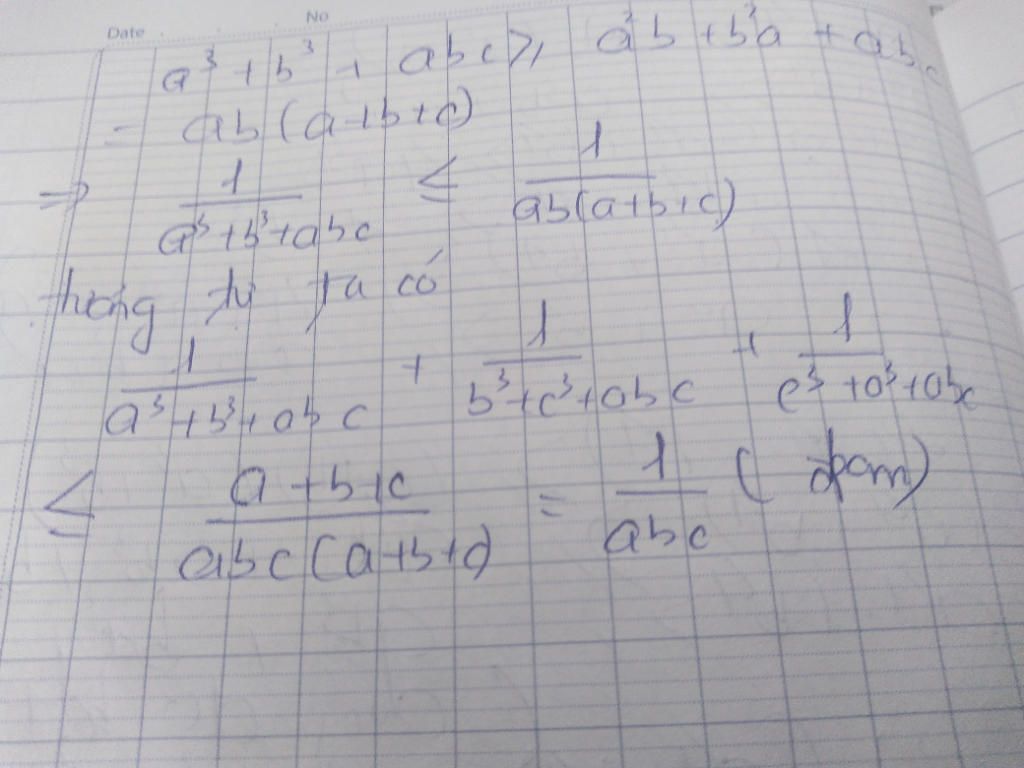 Date No
a³ + b³ + abc ≥ a²b + b²a + abc
= ab(a+b+c)
⇒ 1/(a³+b³+abc) ≤ 1/(ab(a+b+c))
tương tự ta có
1/(a³+b³+abc) + 1/(b³+c³+abc) + 1/(c³+a³+abc)
≤ (a+b+c)/(abc(a+b+c)) = 1/(abc) (đpcm)